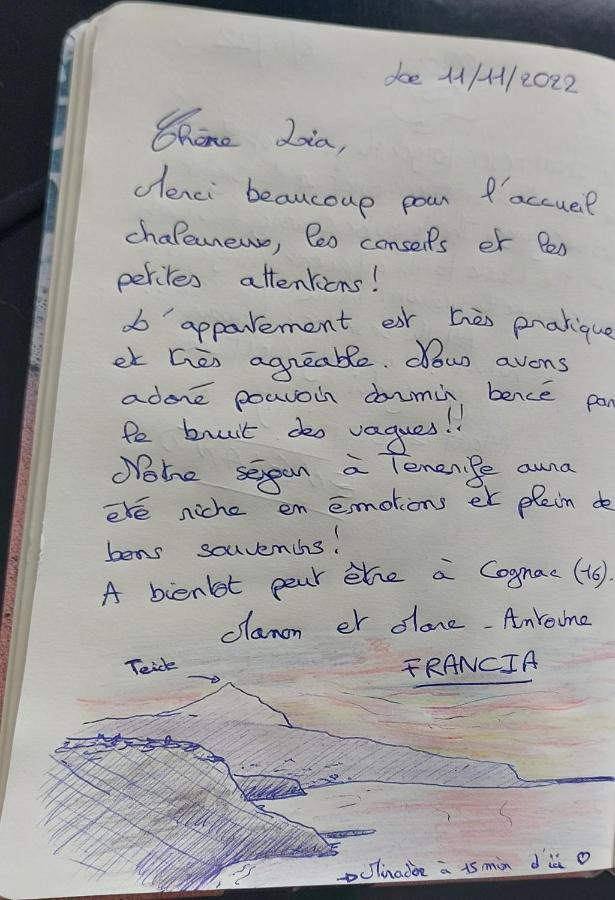 Le 11/11/2022
Chère Lia,
Merci beaucoup pour l'accueil
chaleureux, les conseils et les
petites attentions !
L'appartement est très pratique
et très agréable. Nous avons
adoré pouvoir dormir bercé par
le bruit des vagues !!
Notre séjour à Tenerife aura
été riche en émotions et plein de
bons souvenirs !
A bientot peut être à Cognac (16).
Manon et Marc-Antoine
FRANCIA
Teide
Mirador à 15 min d'ici ♡